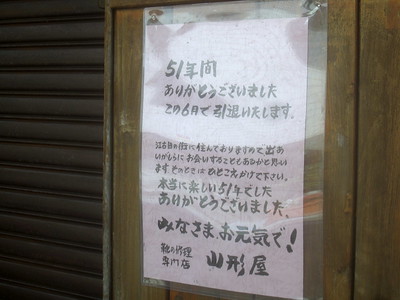 51年間
ありがとうございました
この6月で引退いたします。
に住んでおりますので出あ
いがしらにお会いすることもあるかと思い
ます。そのときはひとこえかけて下さい。
本当に楽しい51年でした
ありがとうございました。
みなさま、お元気で!
靴の修理
専門店
山形屋